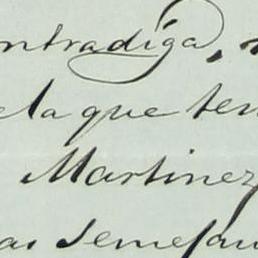 ntradiga,
ela que ten
Martinez
as semejan